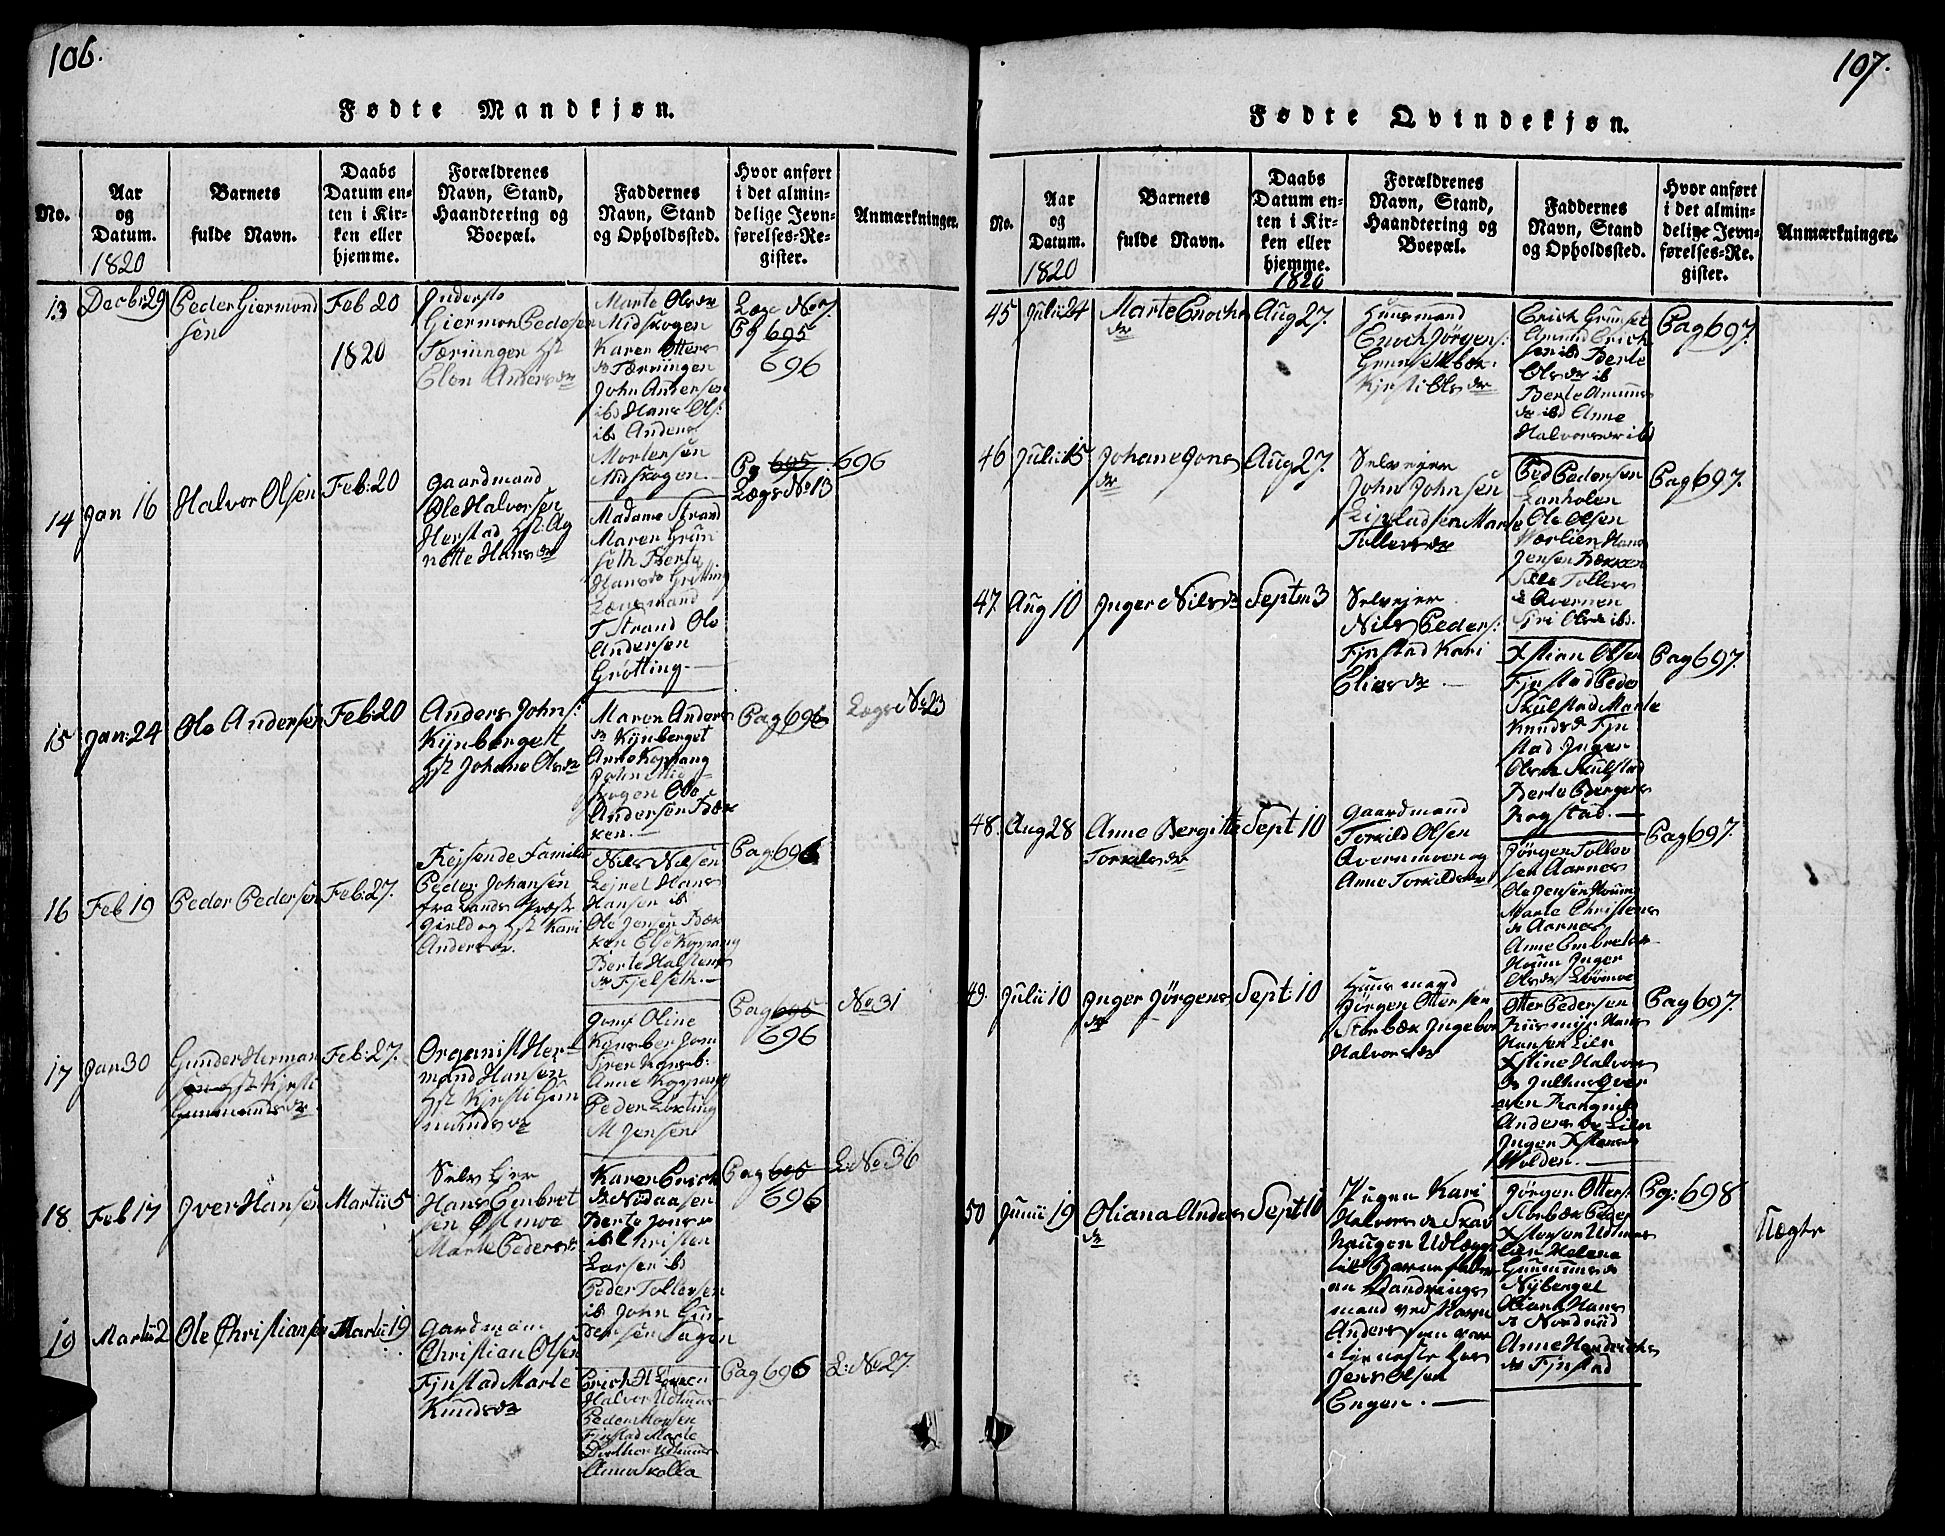 106.
Fødte Mandkjøn.
No.
Aar
og
Datum.
1820
Barnets
fulde Navn.
Daabs
Datum en-
ten i Kir-
ken eller
hjemme.
Forældrenes
Navn, Stand,
Haandtering og
Boepæl.
Faddernes
Navn, Stand
og Opholdssted.
Hvor anført
i det almin-
delige Jevn-
førelses-Re-
gister.
Anmærkninger.
13
Decbr 29
Peder Giermond
sen
Feb 20
1820
Giermon Pedersen
Tærningen
Marte Olsdr
Midskogen
Karen Otters
dr Tærningen
John Andersen
ibd Hans Ols:
ibd Anders
Mortensen
Midskogen.
Læge No 7
Pg 695
696
14
Jan 16
Halvor Olsen
Feb: 20
Gaardmand
Ole Halvorsen
Herstad Hst: Ag
nette Hansdr
Madame Strand
Maren Grün
seth Berte
Hansdr Grötting
Lænsmand
T Strand Ole
Andersen
Grötting.
Pg 695 696
Lægs No 13
15
Jan: 24
Ole Andersen
Feb: 20
Anders John:
Kijnberget
Hst Johane Olsdr
Maren Anders
dr Kijnberget
Anne Koppang
John Mid
skogen Ole
Andersen Bæk
ken.
Pag 696
Lægs No 23
16
Feb 19
Peder Pedersen
Feb: 27.
Rejsende Familie
Peder Johansen
fra Lands Præste
gield og Hst Kari
Andersdr.
Nils Nilsen
Lejret Hans
Hansen ib
Ole Jensen Bæk
ken Else Koppang
Berte Halstens
dr Fjelseth.
Pag: 696
17
Jan 30
Gunder Herman
sen og Hst Kjrsti
Gunmundsdr
Feb: 27.
Organist Her-
mand Hansen
Hst Kjrsti Gun
mundsdr
Jomf Oline
Anne Koppang
Peder Løxting
M Jensen
Pag 695
696
No 31
18.
Feb 17
Iver Hansen
Martii 5
Selv Ejer
Hans Embret
sen Østmoe
Marte Pedersdr
Karen Erich
Berte Jonsdr
ib Christen
Larsen ib
Peder Tollersen
ib John Gun
dersen Sagen
Pag 695
696
L: No 36
19
Martii 2
Ole Christiansen
Martii 19
Gardmann
Christian Olsen
Fjnstad Marte
Knudsdr
Halvor Udhuus
Peder Monsen
Fjnstad Marte
Anne Skolla
Pag 696
L: No 27.
107.
Fødte Qvindekjøn.
No.
Aar
og
Datum.
1820
Barnets
fulde Navn.
Daabs
Datum en-
ten i Kir-
ken eller
hjemme.
1820
Forældrenes
Navn, Stand,
Haandtering og
Boepæl.
Faddernes
Navn, Stand
og Opholdssted.
Hvor anført
i det almin-
delige Jevn-
førelses-Re-
gister.
Anmærkninger.
45
Julii 24
Marte Enochs
dr
Aug 27.
Huusmand
Enoch Jörgens:
Grunsethbæk
Kjrsti Olsdr
Erich Grunset
Amund Erich
sen ib Berte
Olsdr ib
Berte Amuns
dr ibd Anne
Halvorsdr ibd
Pag 697.
46
Julii 15
Johane Jons
dr
Aug 27.
Selvejer
John Johnsen
Tollersdr
Ped Pedersen
Ole Olsen
Hans
Jensen Bækken
Tollers
dr Qvernen
Siri Olsdr ibd.
Pag 697.
47.
Aug 10
Inger Nilsdr
Septm 3
Selvejer
Nils Peders:
Fjnstad Kari
Eliasdr
Xstian Olsen
Fjnstad Peder
Skulstad Marte
Knudsdr Fjn
stad Inger
Olsdr Skulstad
Berte Bergers
Rogstad.
Pag 697.
48.
Aug 28
Anne Bergitte
Torkilsdr
Sept 10
Gaardmand
Torkild Olsen
Qvernmoen og
Anne Torkildsdr
Jörgen Tollov
sen Aarnes
Ole Jensen Houm
Marte Christens
dr Aarnes
Anne Embretsdr
Houm Inger
Olsdr Strömoe
Pag 697.
49.
Julii 10
Inger Jörgens
dr
Sept 10
Huusmand
Jörgen Ottersen
Storbæk Ingebor
Halvorsdr
Otter Pedersen
Hans
Hansen Lien
Xstine Halvors
dr Julhus
Andersdr Lien
Inger Xstensdr
Wolden.
Pag 697.
50
Junii 19
Oliana Anders
dr
Sept 10
Pigen Kari
Halvorsdr Skav
haugen Udlagt
til Barnefader
en Vandrings
mand ved Navn
Anders som var
i tieneste hos
Jens Olsen
Engen.
Jörgen Otters:
Storbæk Peder
Xstensen Udhuus
lien Helena
Gunmunsdr
Nyberget
Hans
dr Nordvid
Anne Hendrichs
dr Fjnstad
Pg: 698
Uægte